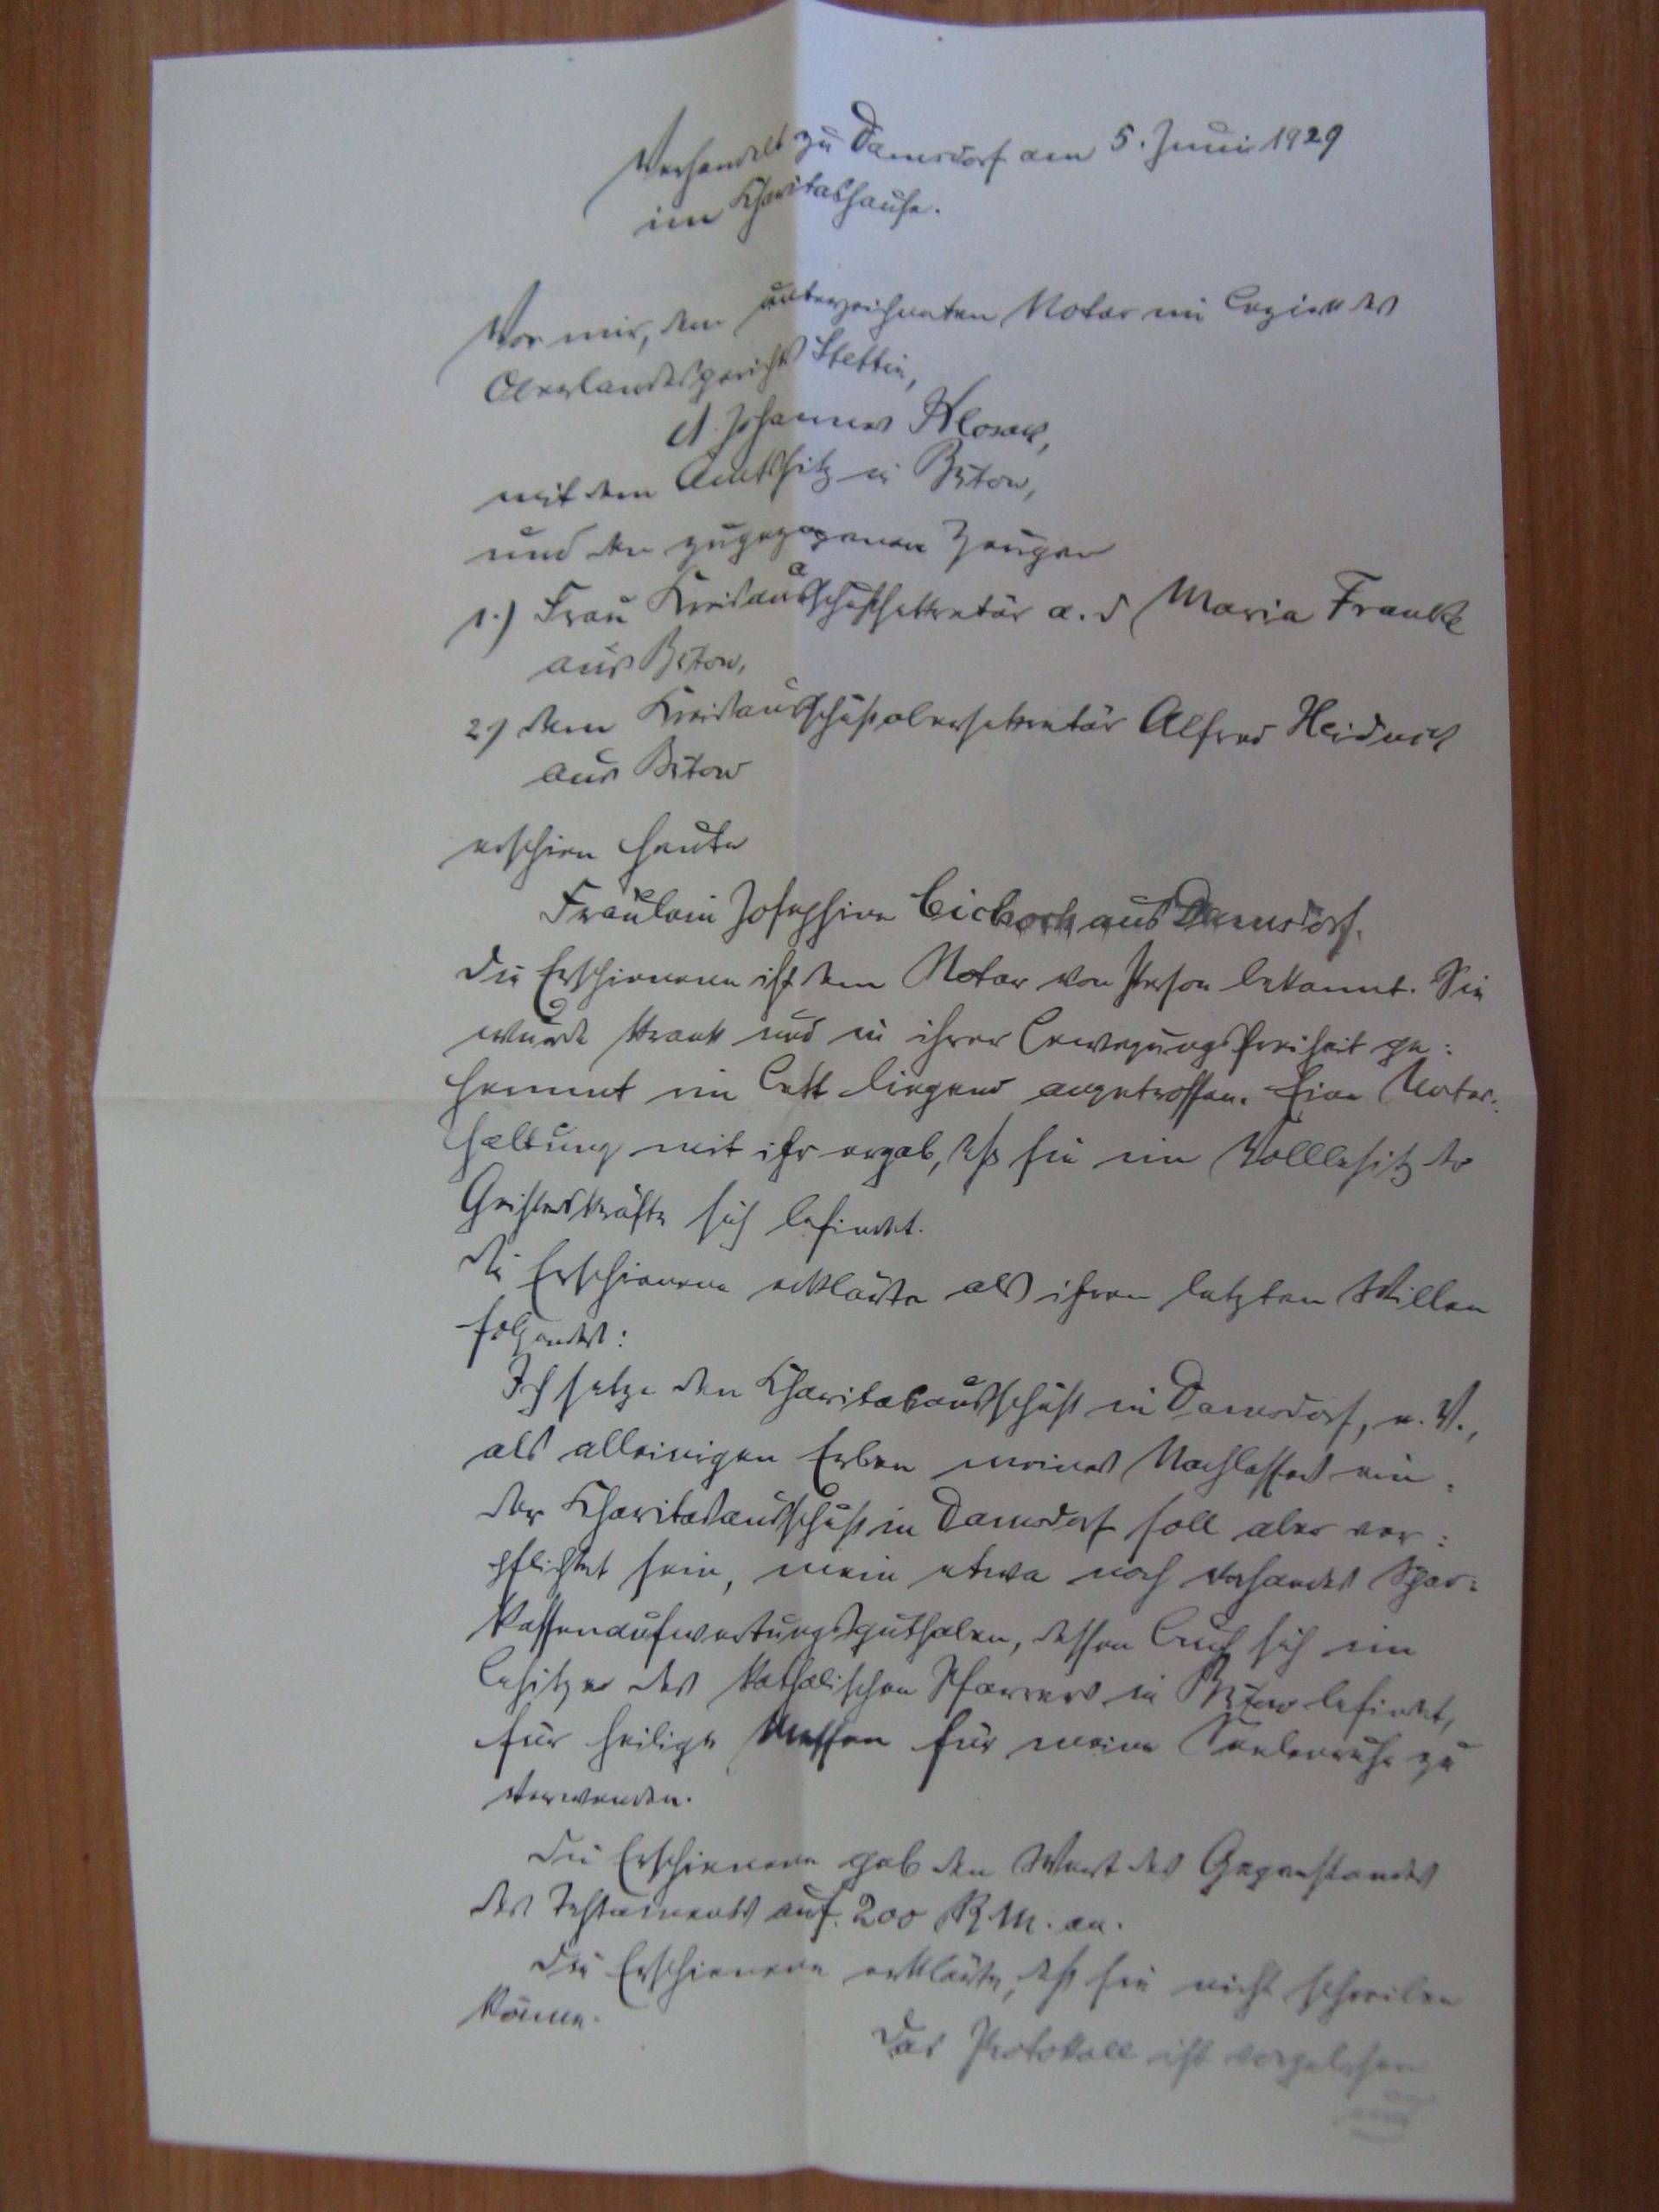 Verhandelt zu Damsdorf am 5. Juni 1929
im Charitashause.
Vor mir, dem unterzeichneten Notar im Bezirk des
Oberlandesgerichts Stettin,
Johannes
mit dem Amtssitz in Bütow,
und den zugezogenen Zeugen
1.) Frau Kreisausschußsekretär a. D Maria Franke
aus Bütow,
2) dem Kreisausschußobersekretär Alfred
aus Bütow
erschien heute
Fräulein Josephine aus Damsdorf.
Die Erschienene ist dem Notar von Person bekannt. Sie
wurde krank und in ihrer Bewegungsfreiheit ge:
hemmt im Bett liegend angetroffen. Eine Unter:
haltung mit ihr ergab, daß sie im Vollbesitz der
Geisteskräfte sich befindet.
Die Erschienene erklärte als ihren letzten Willen
folgendes:
Ich setze den Charitasausschuß in Damsdorf, e. V.,
als alleinigen Erben meines Nachlasses ein.
Der Charitasausschuß in Damsdorf soll aber ver:
pflichtet sein, mein etwa noch vorhandes Spar:
kassenaufwertungsguthaben, dessen Buch sich im
Besitze des katholischen Pfarrers in Bütow befindet,
für heilige Messen für meine Seelenruhe zu
verwenden.
Die Erschienene gab den Wert des Gegenstandes
des Testaments auf 200 R.M. an.
Die Erschienene erklärte, daß sie nicht schreiben
könne.
Das Protokoll ist vorgelesen